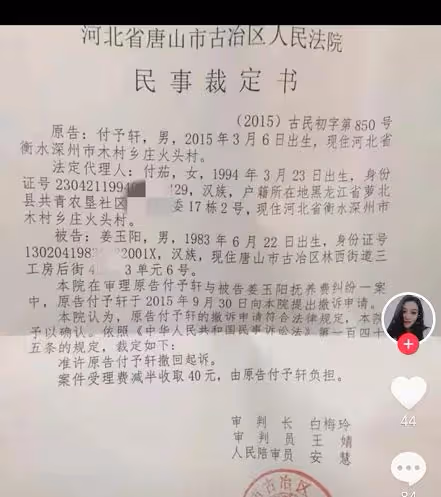 河北省唐山市古冶区人民法院
民事裁定书
（2015）古民初字第850号
原告：付予轩，男，2015年3月6日出生，现住河北省
衡水深州市木村乡庄火头村。
法定代理人：付茹，女，1994年3月23日出生，身份
证号2304211994 129，汉族，户籍所在地黑龙江省萝北
县共青农垦社区 委17栋2号，现住河北省衡水深州市
木村乡庄火头村。
被告：姜玉阳，男，1983年6月22日出生，身份证号
1302041983 2001X，汉族，现住唐山市古冶区林西街道三
工房后街4 3单元6号。
本院在审理原告付予轩与被告姜玉阳抚养费纠纷一案
中，原告付予轩于2015年9月30日向本院提出撤诉申请。
本院认为，原告付予轩的撤诉申请符合法律规定，本院
予以确认。依照《中华人民共和国民事诉讼法》第一百四十
五条的规定，裁定如下：
准许原告付予轩撤回起诉。
案件受理费减半收取40元，由原告付予轩负担。
审判长 白梅玲
审判员 王婧
人民陪审员 安慧
44
84